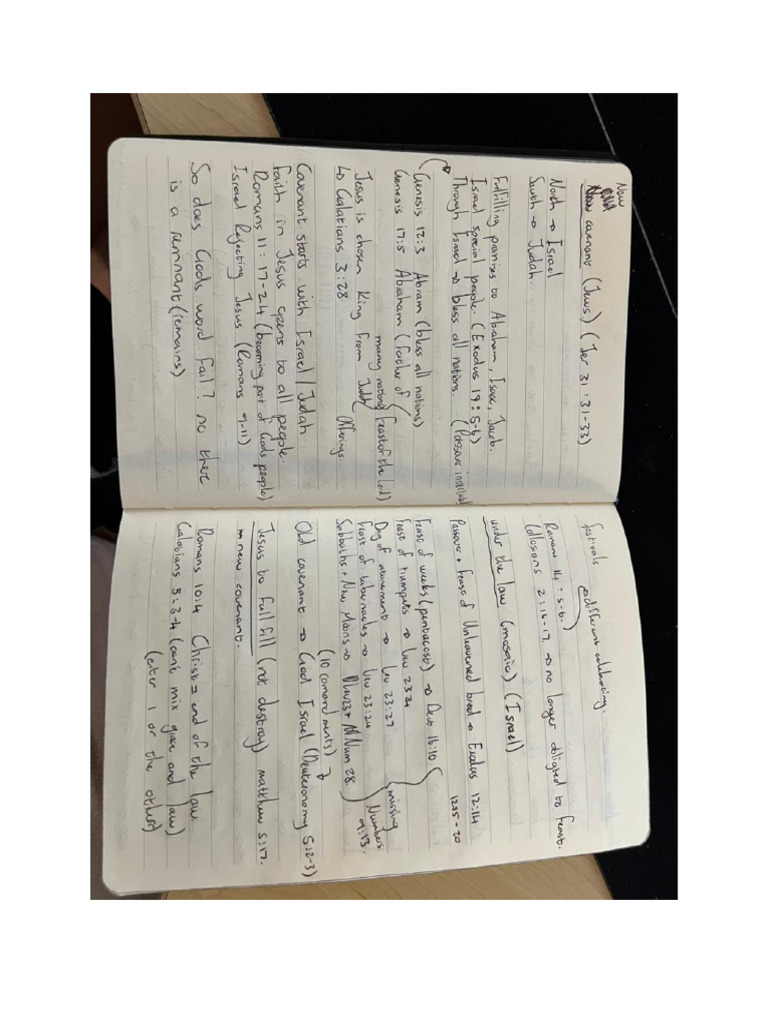 New
New covenant (Jews) (Jer 31:31-33)
North → Israel
South → Judah.
Fulfilling promises to Abraham, Isaac, Jacob.
Israel special people. (Exodus 19:5-6)
Through Israel → bless all nations.
Genesis 12:3 Abram (bless all nations)
Genesis 17:5 Abraham (father of
many nations
Jesus is chosen King from Judah
↳ Galatians 3:28
Covenant starts with Israel/Judah
faith in Jesus opens to all people.
Romans 11:17-24 (becoming part of Gods people)
Israel Rejecting Jesus (Romans 9-11)
So does Gods word fail? no there
is a remnant (remains)
festivals
→ different celebrating.
Romans 14:5-6.
Collosians 2:16-17. → no longer obligated to feast.
under the law (mosaic) (Israel)
(Passave instituted
Passave + feast of Unleavened bread → Exodus 12:14
12:15-20
(feast of the lord)
offerings
feast of weeks (pentacost) → Deut 16:10
feast of trumpets → Lev 23:24
Day of atonement → Lev 23:27
feast of tabernacles → Lev 23:24
Sabbaths + New Moons → Lev 23 + Num 28
missing
Numbers
9:13.
Old covenant → God Israel (Deuteronomy 5:2-3)
(10 comandments)
Jesus to full fill (not destroy) matthew 5:17.
→ new covenant.
Romans 10:4 Christ = end of the law
Galatians 5:3-4 (cant mix grace and law)
(enter 1 or the other)